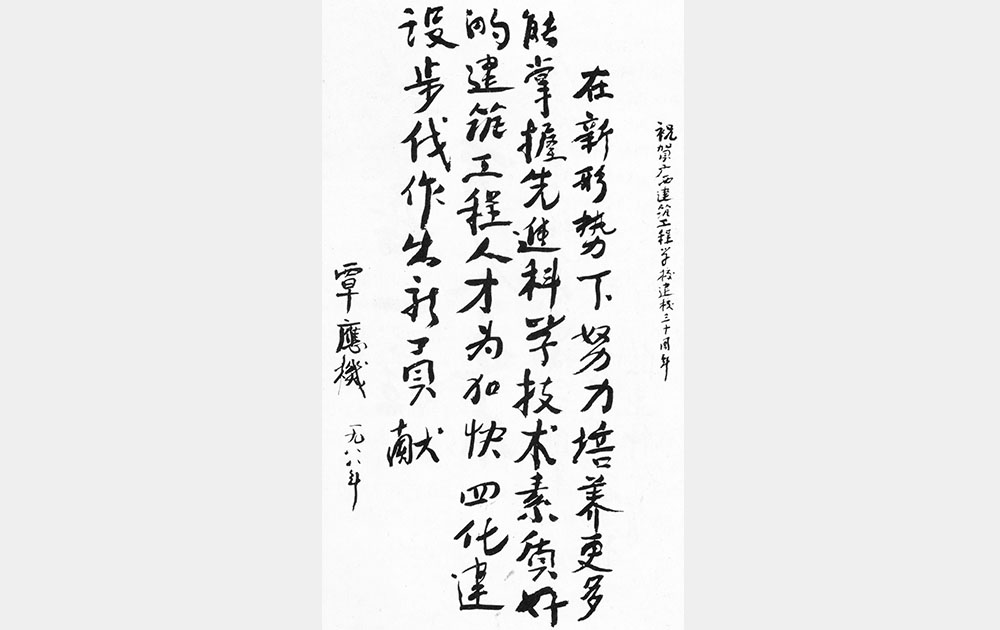 祝贺广西建筑工程学校建校三十周年
在新形势下努力培养更多
能掌握先進科学技术素质好
的建筑工程人才为加快四化建
设步伐作出新贡献
覃應機
一九八八年